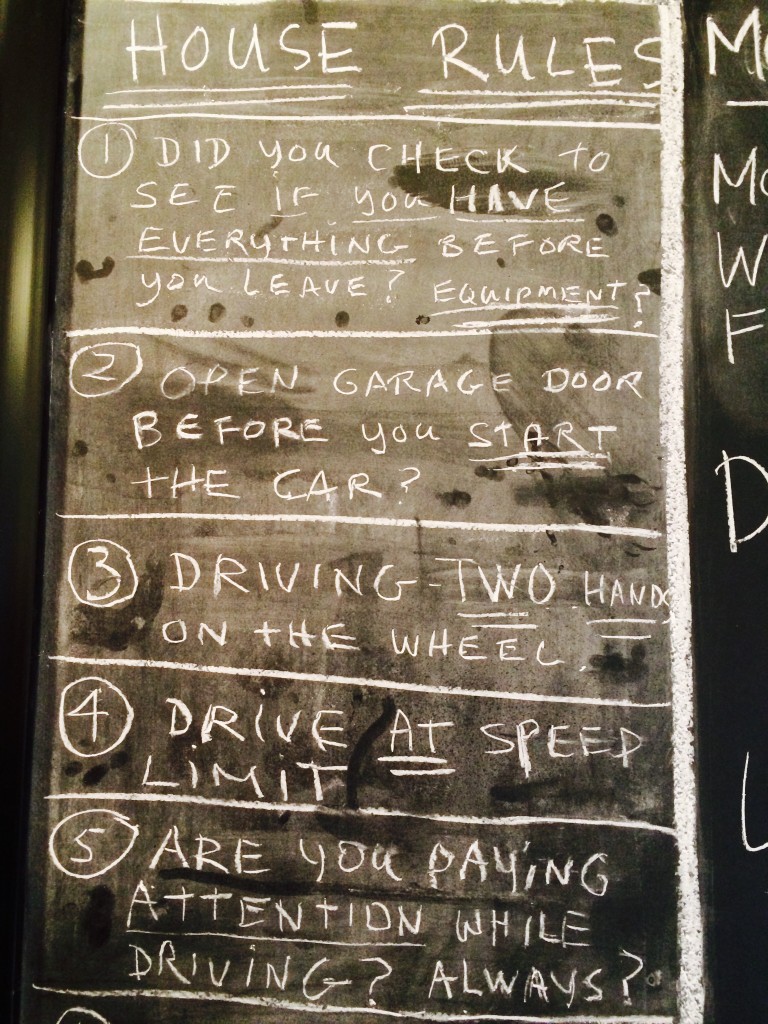 HOUSE RULES
① DID you CHECK to
SEE iF you HAVE
EVERYTHING BEFORE
you LEAVE? EQUIPMENT?
② OPEN GARAGE DOOR
BEFORE you START
tHE CAR?
③ DRIVING - TWO HANDS
ON tHE WHEEL.
④ DRiVE At SPEED
LiMiT
⑤ ARE you PAYiNG
AttENTION WHiLE
DRiViNG? ALWAYS?